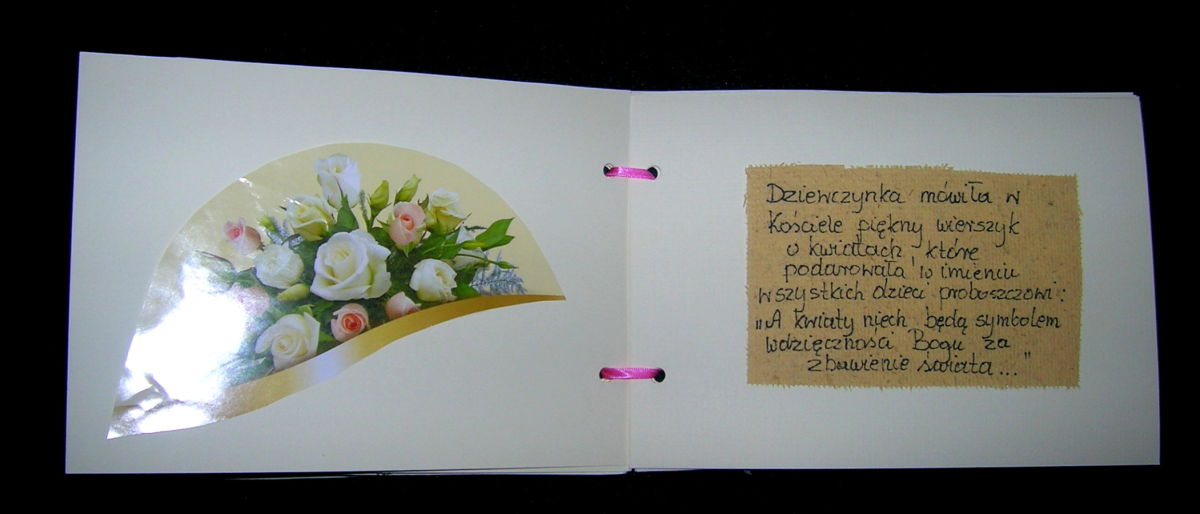 Dziewczynka mówiła w
Kościele piękny wierszyk
o kwiatach, które
podarowała w imieniu
wszystkich dzieci proboszczowi:
„A kwiaty niech będą symbolem
wdzięczności Bogu za
zbawienie świata..."